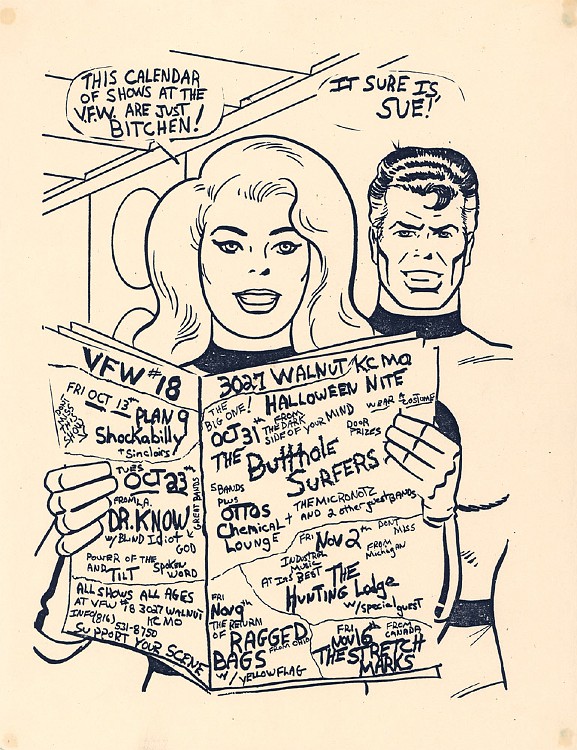 THIS CALENDAR
OF SHOWS AT THE
V.F.W. ARE JUST
BITCHEN!
IT SURE IS,
SUE!
VFW #18
FRI OCT 13TH
DON'T MISS SHOW
PLAN 9
Shockabilly
+ Sinclairs
TUES
OCT 23rd
FROM L.A.
DR. KNOW
W/ BLIND Idiot
GOD
GREAT BANDS
POWER OF THE
SPOKEN
AND TILT
WORD
ALL SHOWS ALL AGES
AT VFW #8 3027 WALNUT
KC MO
INFO (816) 531-8750
SUPPORT YOUR SCENE
3027 WALNUT KC MO
THE
BIG ONE!
HALLOWEEN NITE
WEAR A COSTUME
OCT 31th
FROM
THE DARK
SIDE OF YOUR MIND
DOOR
PRIZES
THE Butthole
SURFERS
5 BANDS
PLUS
OTTOS
Chemical
LOUNGE
THE MICRONOTZ
+ AND 2 other guest BANDS
FRI
NOV 2th
DON'T
MISS
FROM
Michigan
INDUSTRIAL
MUSIC
AT ITS BEST
THE
HUNTING Lodge
W/ special guest
FRI
NOV 9th
THE RETURN
OF
RAGGED
BAGS
FROM OHIO
W/ YELLOW FLAG
FRI
NOV 16th
FROM
CANADA
THE STRETCH
MARKS